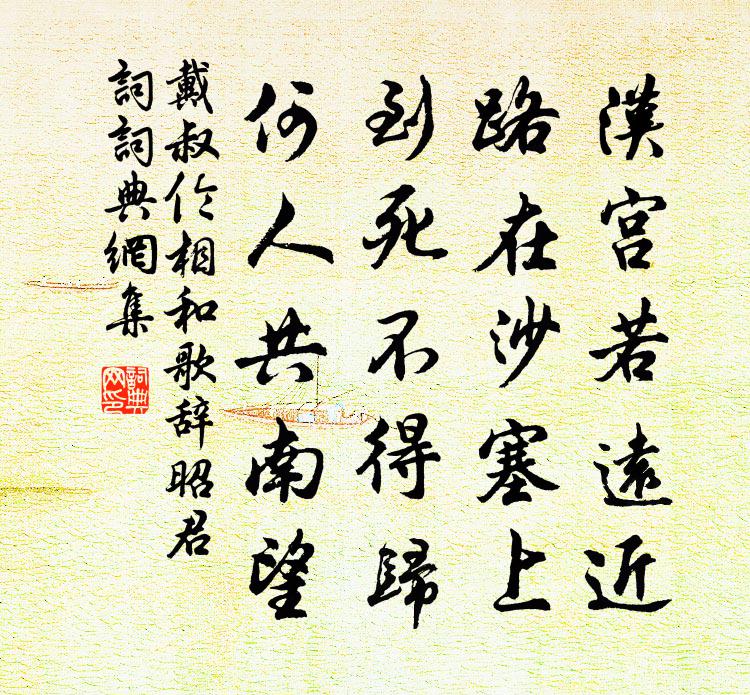 漢宮若遠近
路在沙塞上
到死不得歸
何人共南望
戴叔伦相和歌辞昭君
詞詞典網集
詞典网印